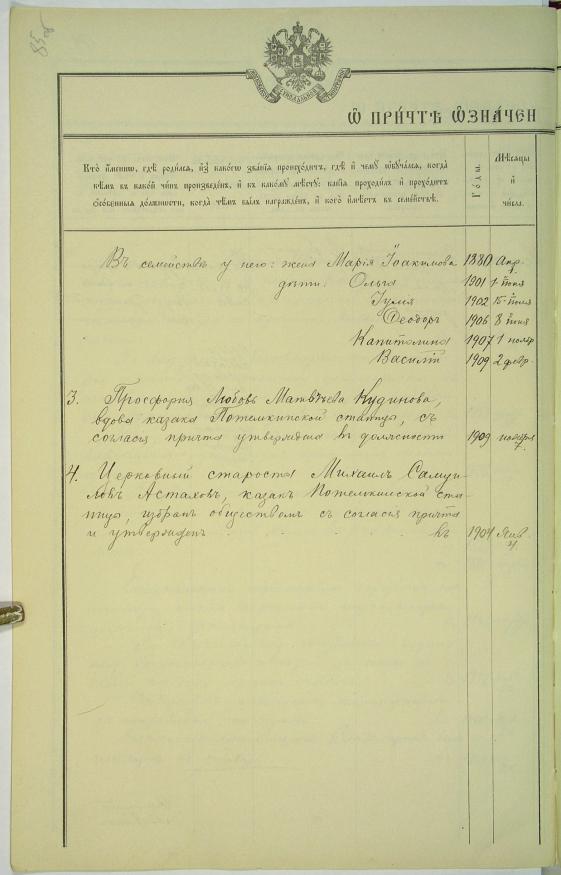 85об
Ѿ ПРИ́ЧТѢ ѠЗНА́ЧЕН
Кто̀ и҆́менно, гдѣ̀ роди́лсѧ, и҆з̾ како́гѡ зва́нїѧ происхо́дитъ, гдѣ̀ и҆ чемꙋ̀ ѡ҆бꙋча́лсѧ, когда̀
кѣ́мъ въ како́й чи́нъ произведе́нъ, и҆ къ како́мꙋ мѣ́стꙋ: какі̑ѧ проходи́лъ и҆ прохо́дитъ
ѻ҆со́бенныѧ до́лжности, когда̀ чѣ́мъ бы́лъ награжде́нъ, и҆ кого̀ и҆мѣ́етъ въ семе́йствѣ.
Го́ды.
Мѣ́сѧцы
и҆
чи́сла.
Въ семействѣ у него: жена Марія Іоакимова 1880 Апр. 1
дѣти: Ольга 1901 1 іюня
Іулія 1902 15 іюля
Ѳеодоръ 1906 8 іюня
Капитолина 1907 1 ноябр
Василій 1909 2 февр.
3. Просфорня Любовь Матвѣева Кудинова,
вдова казака Потемкинской станицы, съ
согласія причта утверждена въ должности 1909 ноября 7.
4. Церковный староста Михаилъ Самуи-
ловъ Астаховъ, казакъ Потемкинской ста-
ницы, избранъ обществомъ съ согласія причта
и утвержденъ . . . . въ 1904 Янв.